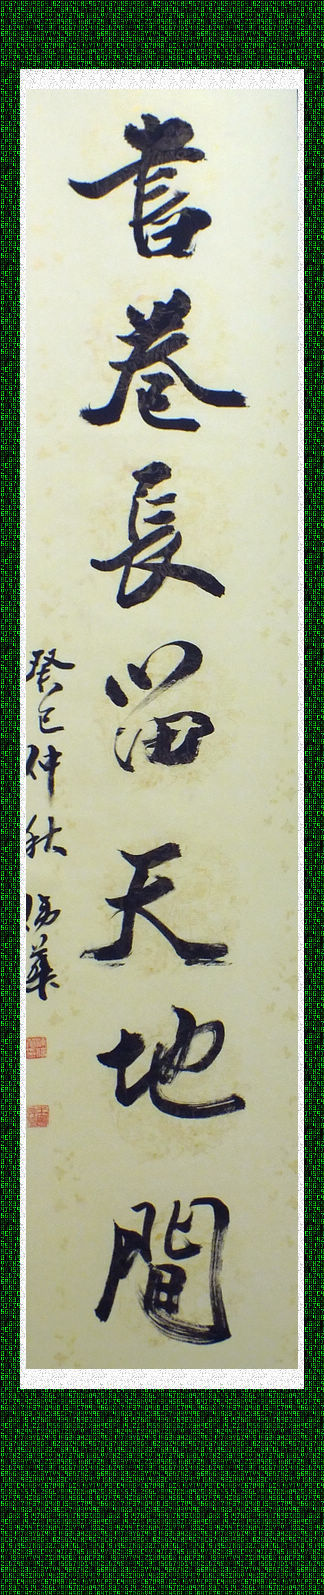 書卷長留天地間
癸巳仲秋